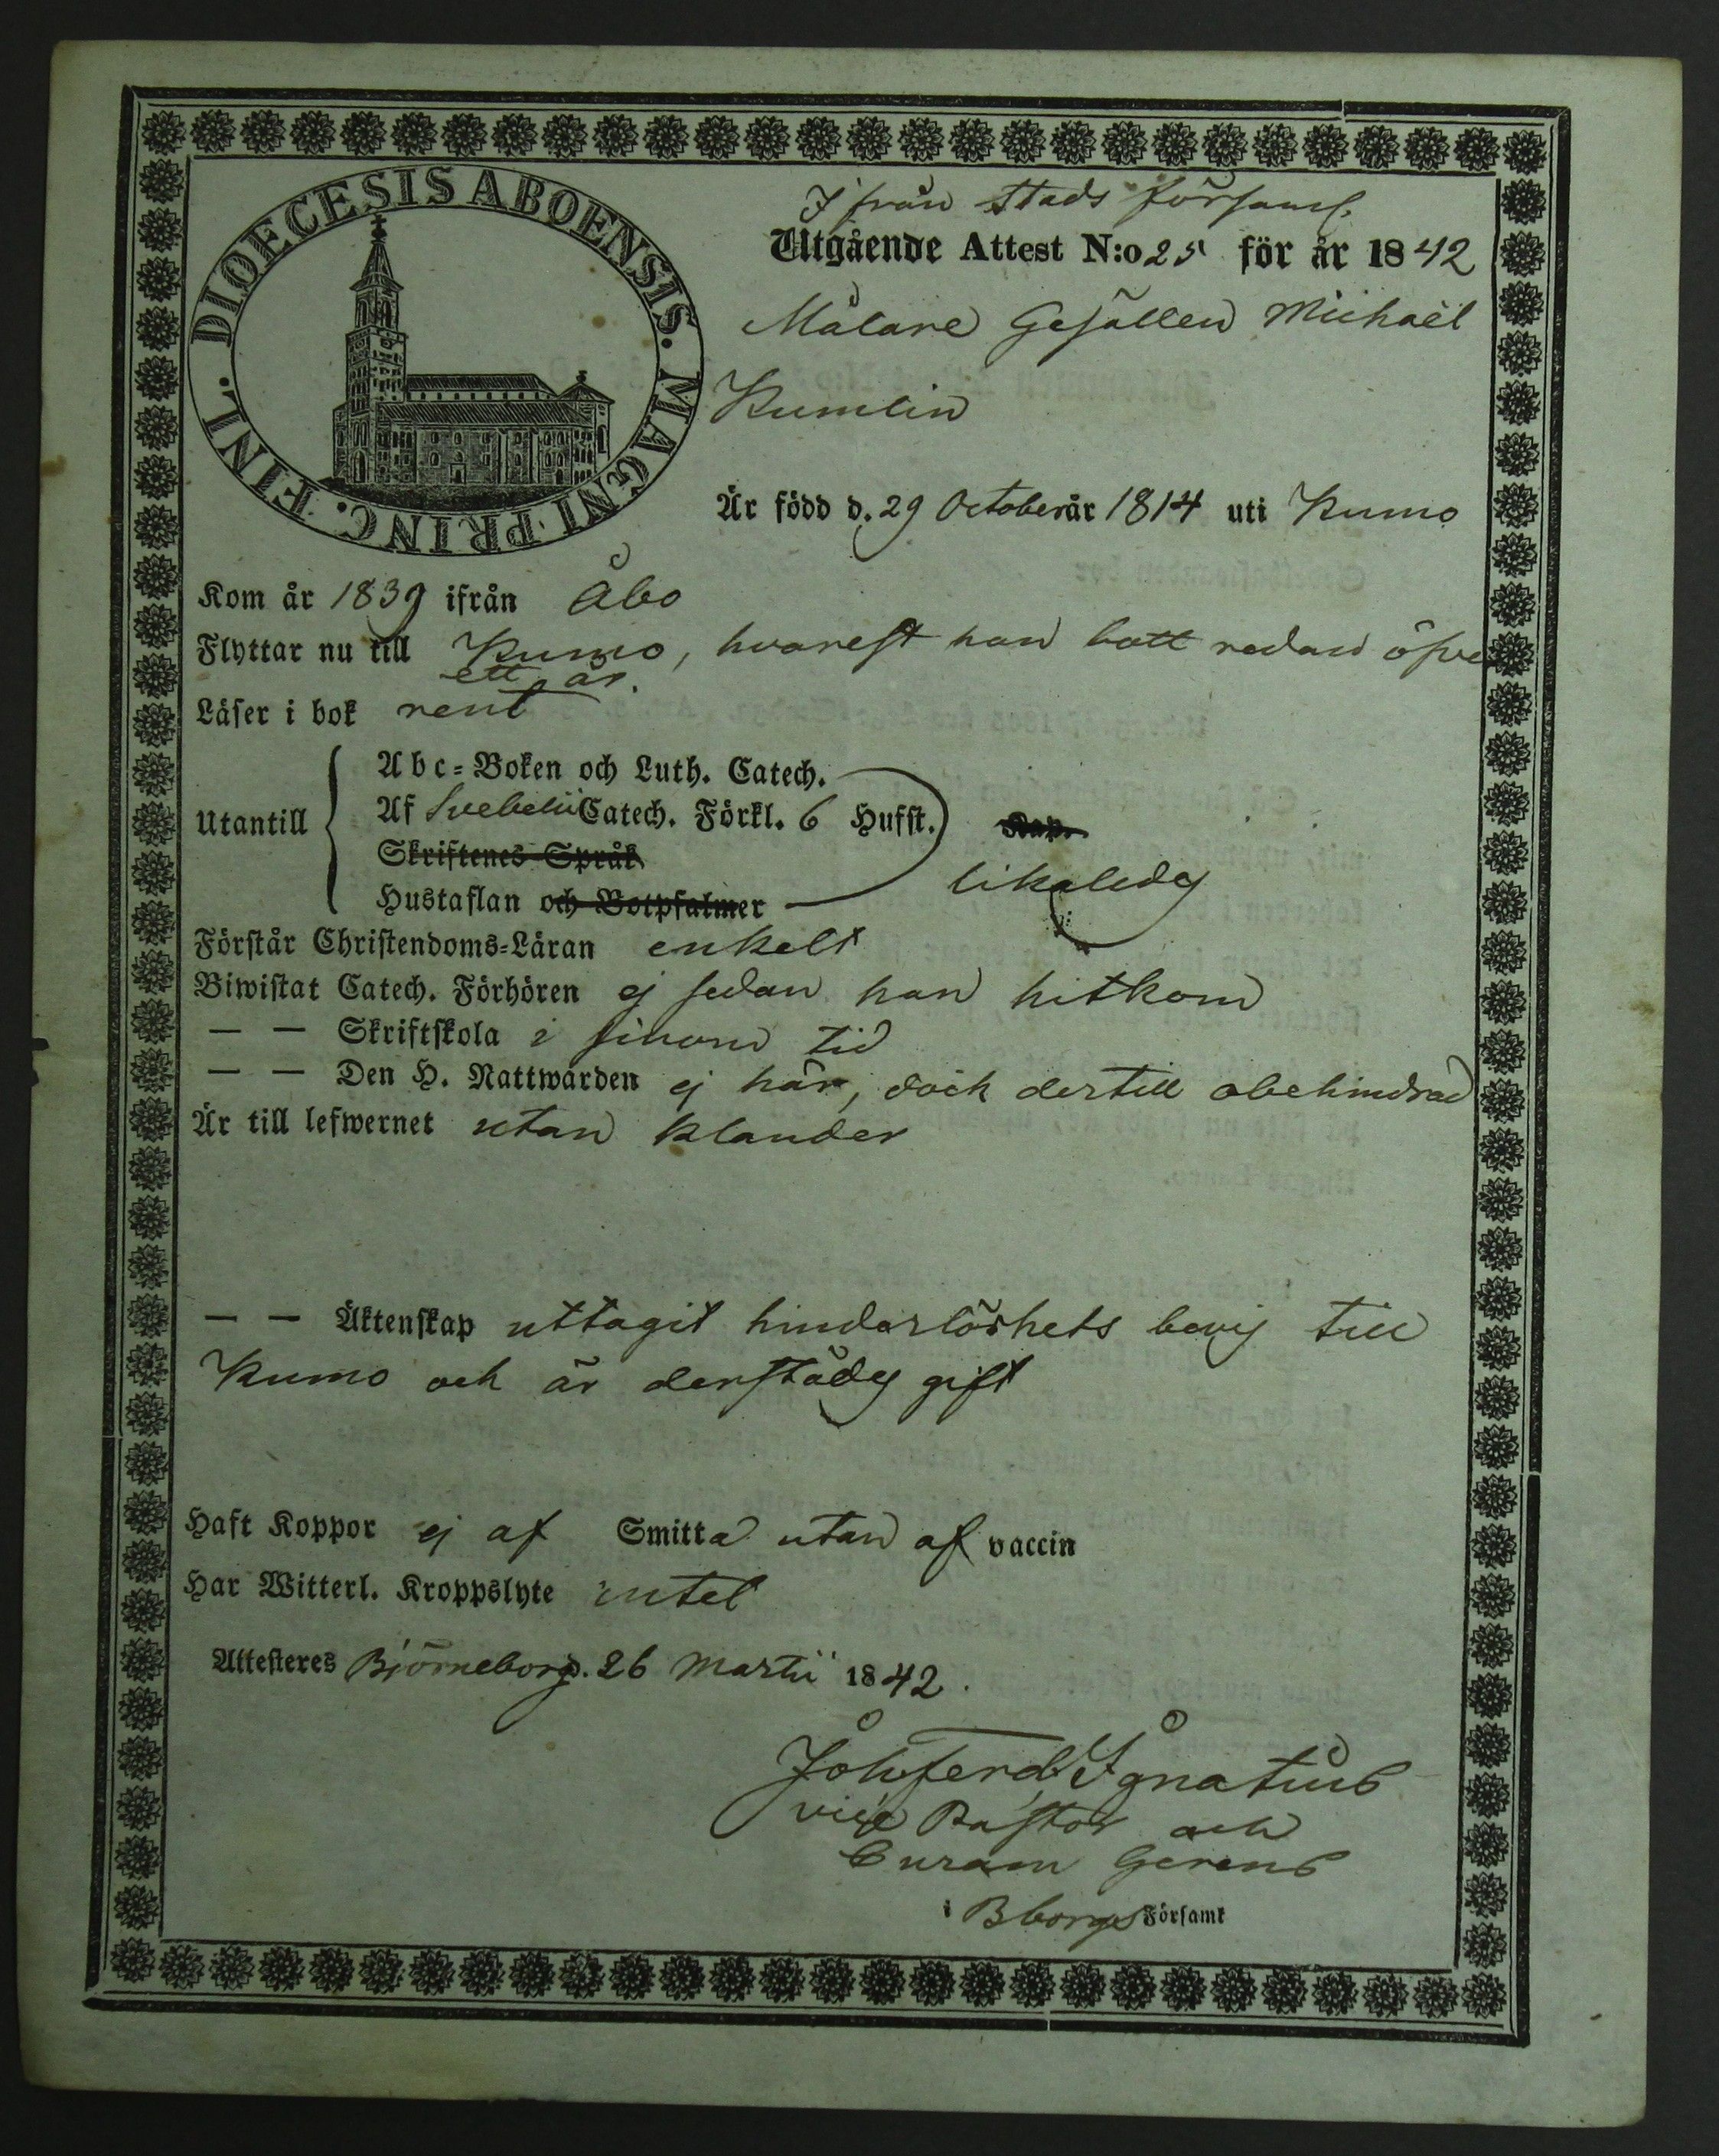 DIOECESIS ABOENSIS. MAGNI PRINC. FINL.
Ifrån Stads församl.
Utgående Attest N:o 25 för år 1842
Målare Gesällen Michaël
Kumlin
Är född d. 29 October år 1814 uti Kumo
Kom år 1839 ifrån Åbo
Flyttar nu till Kumo, hvarest han bott redan öfver
ett år.
Läser i bok rent
Utantill
Abc-Boken och Luth. Catech.
Af Svebelii Catech. Förkl. 6 Hufst. Kap.
Skriftenes Språk
likaledes
Hustaflan och Botpsalmer
Förstår Christendoms-Läran enkelt
Biwistat Catech. Förhören ej sedan han hitkom
— — Skriftskola i sinom tid
— — Den H. Nattwarden ej här, dock dertill obehindrad
Är till lefwernet utan klander
— — Äktenskap uttagit hinderlöshets bevis till
Kumo och är derstädes gift
Haft Koppor ej af Smitta utan af vaccin
Har Witterl. Kroppslyte intet
Attesteres Björneborg d. 26 Martii 1842.
Joh. Ferd. Ignatius
vice Pastor och
Curam Gerens
i Bborgs Församl